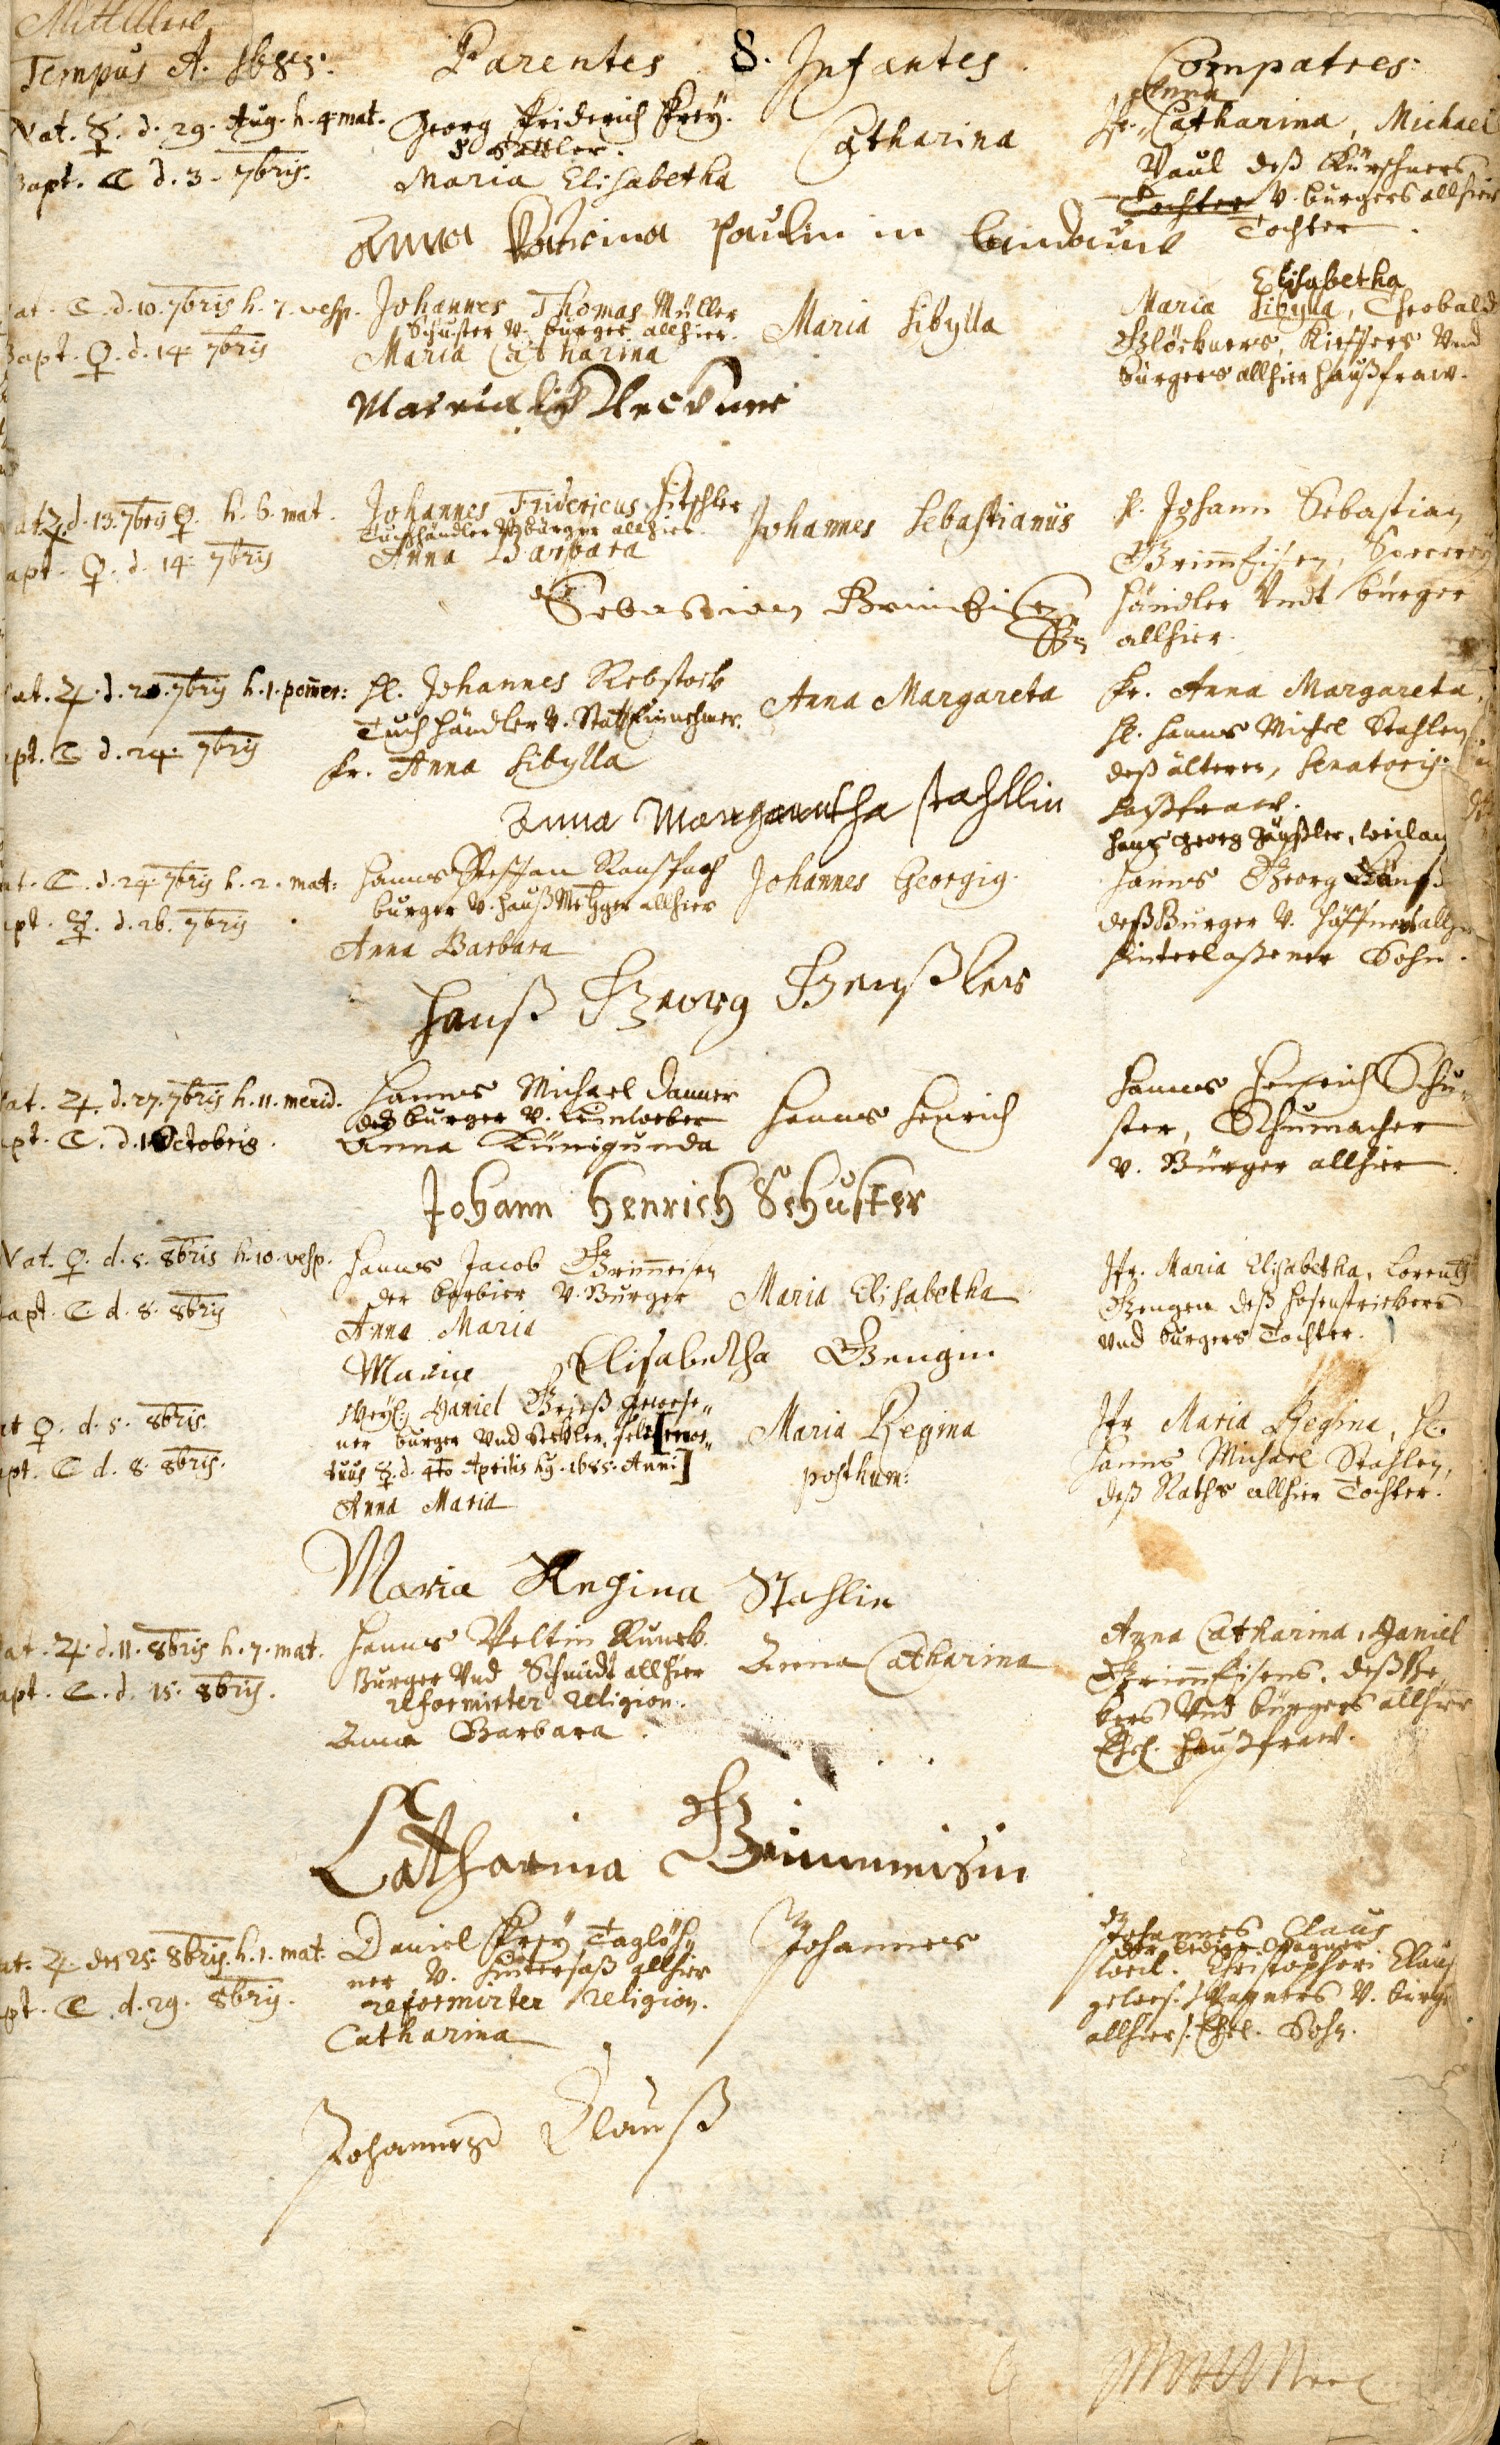 Tempus A. 1685.
Parentes 8. Infantes
Compatres:
Nat. ☿. d. 29. Aug. h. 4. mat.
Bapt. ☾ d. 3. 7bris.
Georg Friderich Frey.
Sattler.
Maria Elisabetha
Catharina
Anna
Jfr. Catharina, Michael
Paul deß Kürschners
Tochter v. burgers allhier
Tochter.
Anna Catrina Paulin in Landauw
Nat. ☾. d. 10. 7bris h. 7. vesp.
Bapt. ♀. d. 14. 7bris
Johannes Thomas Müller
Schuster v. burger allhier.
Maria Catharina
Maria Sibylla
Elisabetha
Maria Sibylla, Theobald
Glöckners, Kieffers Vnd
Burgers allhier Haußfraw.
Nat. ♃. d. 13. 7bris ♀. h. 6. mat.
Bapt. ♀. d. 14. 7bris
Johannes Fridericus Hitschler
Tuchhändler v. burger allhier.
Anna Barbara
Johannes Sebastianus
H. Johann Sebastian
Grimmeisen, Specerey
händler Vndt burger
allhier.
Sebastian Brimeisen
Nat. ♃. d. 20. 7bris h. 1. pomer:
Bapt. ☾ d. 24. 7bris
H. Johannes Rebstock
Tuchhändler v. Statt Einnehmer.
Fr. Anna Sibylla
Anna Margareta
Fr. Anna Margareta,
H. Hanns Michel Stahlen
deß älteren, Senatoris
Haßfraw.
Anna Margaretha Stahllin
Nat. ☾. d. 24. 7bris h. 2. mat:
Bapt. ☿. d. 26. 7bris
Hanns Steffan Ranspach
burger v. Hauß Metzger allhier
Anna Barbara
Johannes Georgig.
Hans Georg Jäußler, weilan
Hanns Georg
deß Burger v. Häffners allh
hinterlaßener Sohn.
Hanß Georg Genßler
Nat. ♃. d. 27. 7bris h. 11. merid.
Bapt. ☾. d. 1 Octobris.
Hanns Michael Danner
der burger v. Leinweber
Anna Künigunda
Hanns Henrich
Hanns Henrich Schu-
ster, Schumacher
v. Bürger allhier.
Johann Henrich Schuster
Nat. ♀. d. 5. 8bris h. 10. vesp.
Bapt. ☾ d. 8. 8bris
Hanns Jacob Grimeisen
der barbier v. Burger
Anna Maria
Maria Elisabetha
Jfr. Maria Elisabetha, Lorentz
Gengen deß Hosenstrickers
vnd burgers Tochter.
Maria Elisabetha Gengin
Nat ♀. d. 5. 8bris.
Bapt. ☾ d. 8. 8bris.
Weyl. Daniel Grieß gewese-
ner burger Vnd
tuus ☿. d. 4to Aprilis hj. 1685. Anni]
Anna Maria
Maria Regina
posthum:
Jfr Maria Regina, H.
Hanns Michael Stahlen,
deß Raths allhier Tochter.
Maria Regina Stahlin
Nat. ♃. d. 11. 8bris h. 7. mat.
Bapt. ☾. d. 15. 8bris.
Hanns Veltin Kunck.
Burger Vnd Schmidt allhier
reformirter religion.
Anna Barbara.
Anna Catharina
Anna Catharina, Daniel
Grimmeisens, deß Be-
ckers Vnd burgers allhier
Ehel. Haußfraw.
Catharina Grimmeisin
Nat. ♃ den 25. 8bris. h. 1. mat.
Bapt. ☾. d. 29. 8bris.
Daniel Frey Taglöh-
ner v. Hintersaß allhier
reformirter religion.
Catharina
Johannes
Johannes Claus
der ledige Wagner
weil. Christopheri Claus
gewes. Wagners v. burge
allhier Ehel. Sohn.
Johannes Clauß